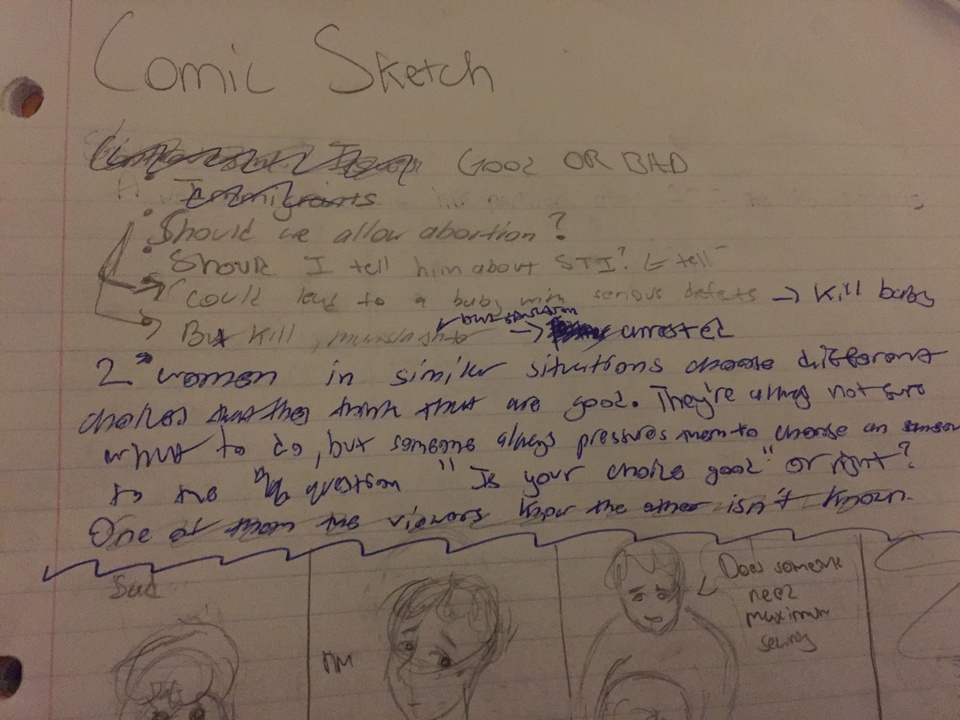 Comic Sketch
Good OR BAD
Immigrants
Should we allow abortion?
Should I tell him about STI? tell
could lead to a baby with serious defects → Kill baby
But Kill, → arrested
2 women in similar situations choose different
choices that they think that are good. They're always not sure
what to do, but someone always pressures them to choose an
to the question "Is your choice good" or right?
One of them the viewers know the other isn't known.
Sad
Does someone
need
maximum